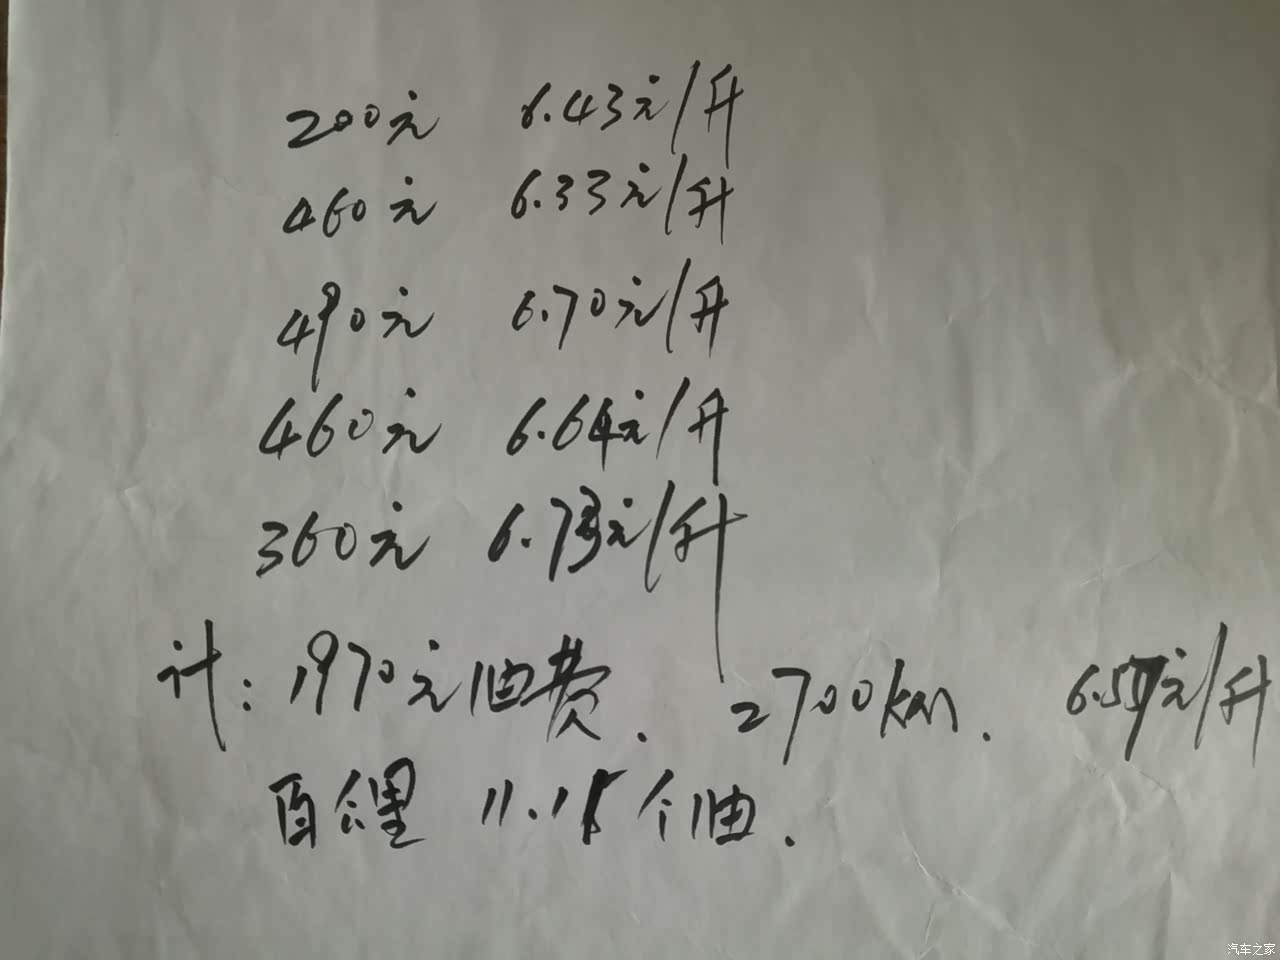 200元 6.43元/升
460元 6.33元/升
490元 6.70元/升
460元 6.64元/升
360元 6.73元/升
计:1970元油费. 2700km. 6.57元/升
百公里 11.1 个油.
汽车之家